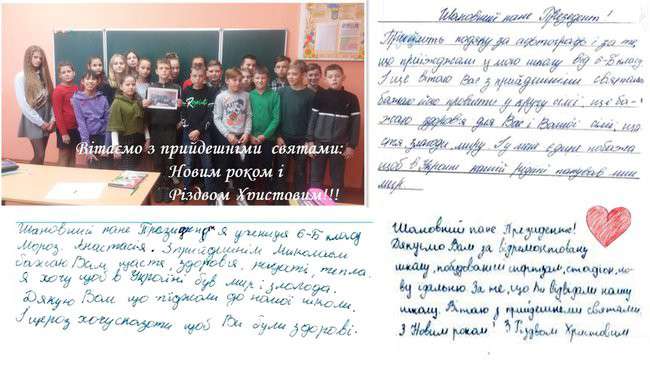 Вітаємо з прийдешніми святами:
Новим роком і
Різдвом Христовим!!!
Шановний пане Президент! Я учениця 6-Б класу
Мороз Анастасія. З прийдешнім Миколаєм
бажаю Вам щастя, здоров'я, тепла.
Я хочу щоб в Україні був мир і злагода.
Дякую Вам що до нашої школи.
І щераз хочу сказати щоб Ви були здорові.
Шановний пане Президент!
Прийміть подяку за фотографію і за те,
що приїжджали у мою школу від 6-Б класу
І ще вітаю Вас з прийдешніми святами
бажаю їх провести у друзів сімї, ще ба-
жаю здоров'я для Вас і Вашої сімї, ща-
стя, злагоди, миру. І у мене єдине побажання
щоб в Україні нашій рідній панував лише
мир.
Шановний пане Президенте!
Дякуємо Вам за відремонтовану
школу, побудований стадіон, но-
ву їдальню. За те, що Ви відвідали нашу
школу. Вітаю з прийдешніми святами.
З Новим роком! З Різдвом Христовим